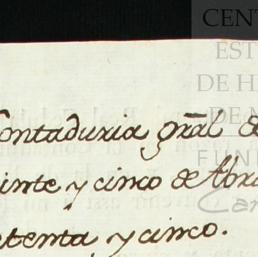 CENT
EST
DE H
DE M
FUN
Car
Contaduria gr̃al de
inte y cinco de Abr
etenta, y cinco.